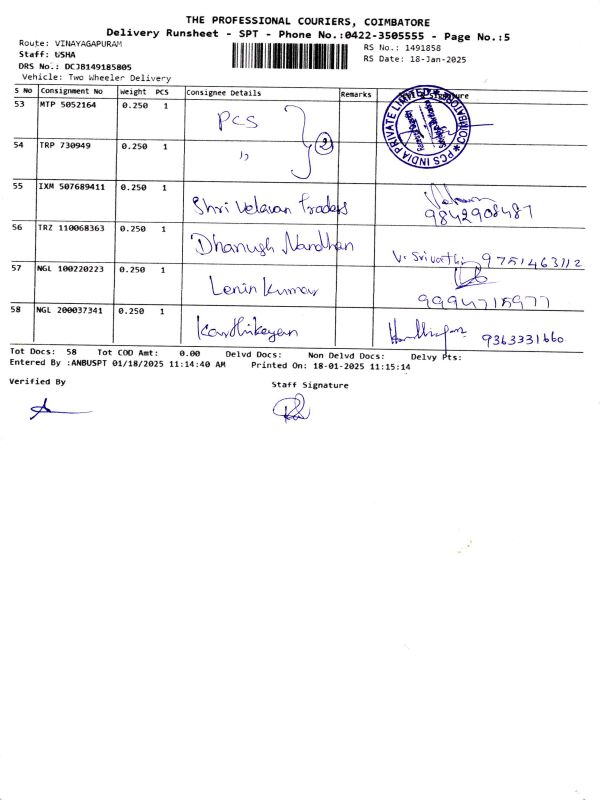 THE PROFESSIONAL COURIERS, COIMBATORE
Delivery Runsheet - SPT - Phone No.:0422-3505555 - Page No.:5
Route: VINAYAGAPURAM
Staff: USHA
DRS No.: DCJB149185805
Vehicle: Two Wheeler Delivery
RS No.: 1491858
RS Date: 18-Jan-2025
S No Consignment No Weight PCS Consignee Details Remarks Signature
53 MTP 5052164 0.250 1 PCS
54 TRP 730949 0.250 1 " 2
PCS INDIA PRIVATE LIMITED
55 IXM 507689411 0.250 1 Shri Velavan Traders 9842908487
56 TRZ 110068363 0.250 1 Dhanush Nandhan V. Srivathi 9751463112
57 NGL 100220223 0.250 1 Lenin Kumar 9994715977
58 NGL 200037341 0.250 1 Karthikeyan 9363331660
Tot Docs: 58 Tot COD Amt: 0.00 Delvd Docs: Non Delvd Docs: Delvy Pts:
Entered By :ANBUSPT 01/18/2025 11:14:40 AM Printed On: 18-01-2025 11:15:14
Verified By Staff Signature